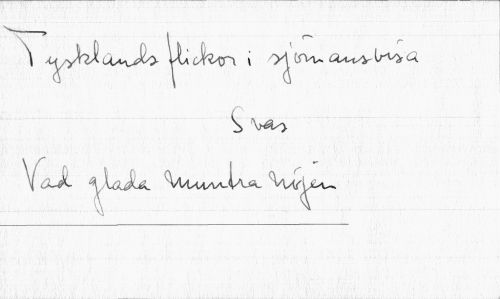 Tysklands flickor i sjömansvisa
Svas
Vad glada muntra nöjen